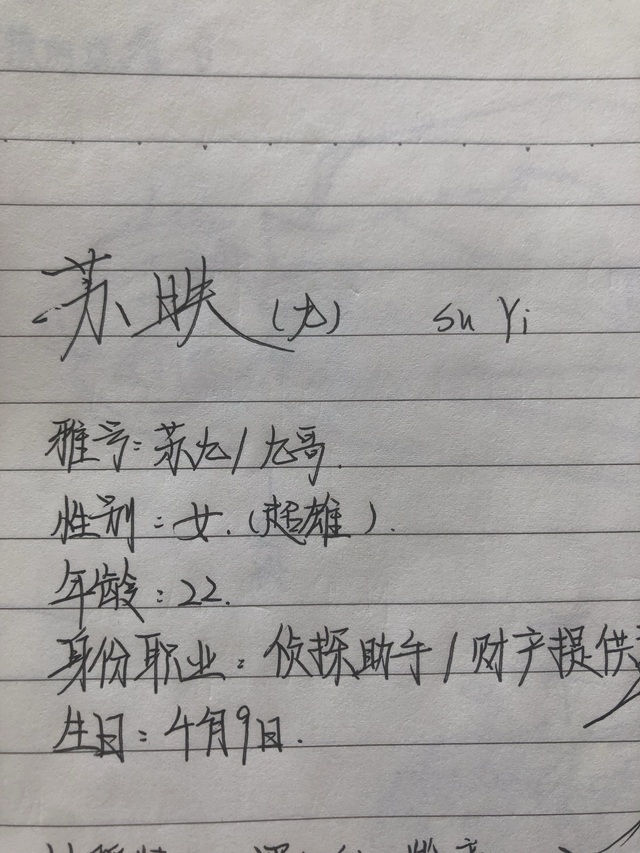 苏昳（九） su Yi
雅号：苏九/九哥.
性别：女.（超雄）.
年龄：22.
身份职业：侦探助手/财产提供
生日：4月9日.